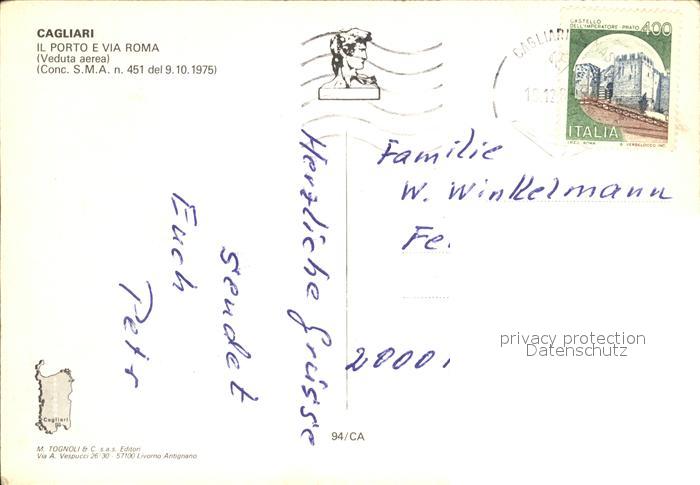 CAGLIARI
IL PORTO E VIA ROMA
(Veduta aerea)
(Conc. S.M.A. n. 451 del 9.10.1975)
CAGLIARI
CASTELLO
DELL'IMPERATORE - PRATO 400
ITALIA
I.P.Z.S. ROMA
Familie
W. Winkelmann
Fe
28001
Herzliche Grüsse
sendet
Euch
Petr
privacy protection
Datenschutz
Cagliari
94/CA
M. TOGNOLI & C. s.a.s. Editori
Via A. Vespucci 26/30 - 57100 Livorno Antignano